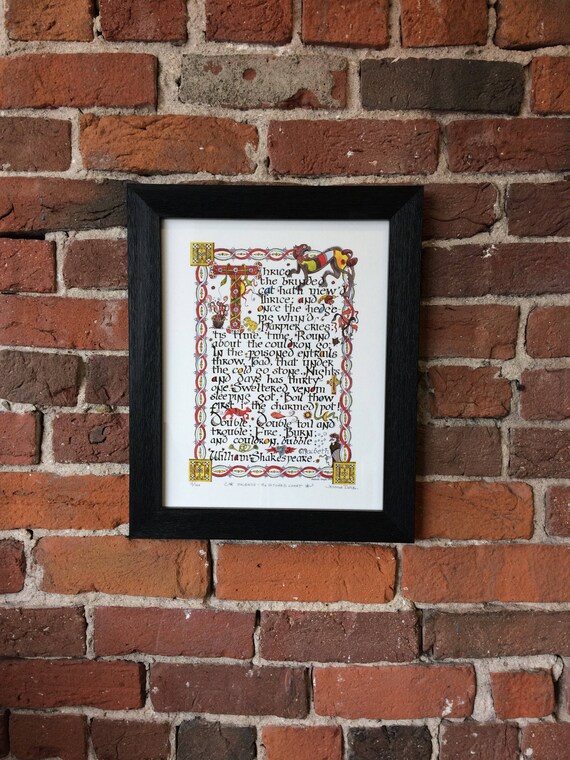 Thrice
the brinded
cat hath mew'd
thrice; and
once the hedge
pig whin'd
Harpier cries;
'tis time, time. Round
about the couldron go;
In the poisoned entrails
throw. Toad, that under
the cold go stone. Nights
and days has thirty
one. Sweltered venom
sleeping got. Boil thow
first i' the charmed pot!
Double, Double toil and
trouble; Fire, Burn;
and couldron, bubble
Macbeth
William Shakespeare